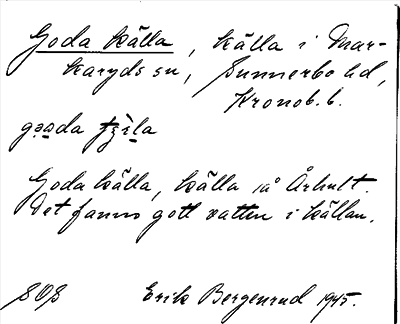 Goda källa, källa i Mar-
karyds sn, Sunnerbo hd,
Kronob. l.
gooda
Goda källa, källa på Århult.
Det fanns gott vatten i källan.
SOS Erik Bergenrud 1945.